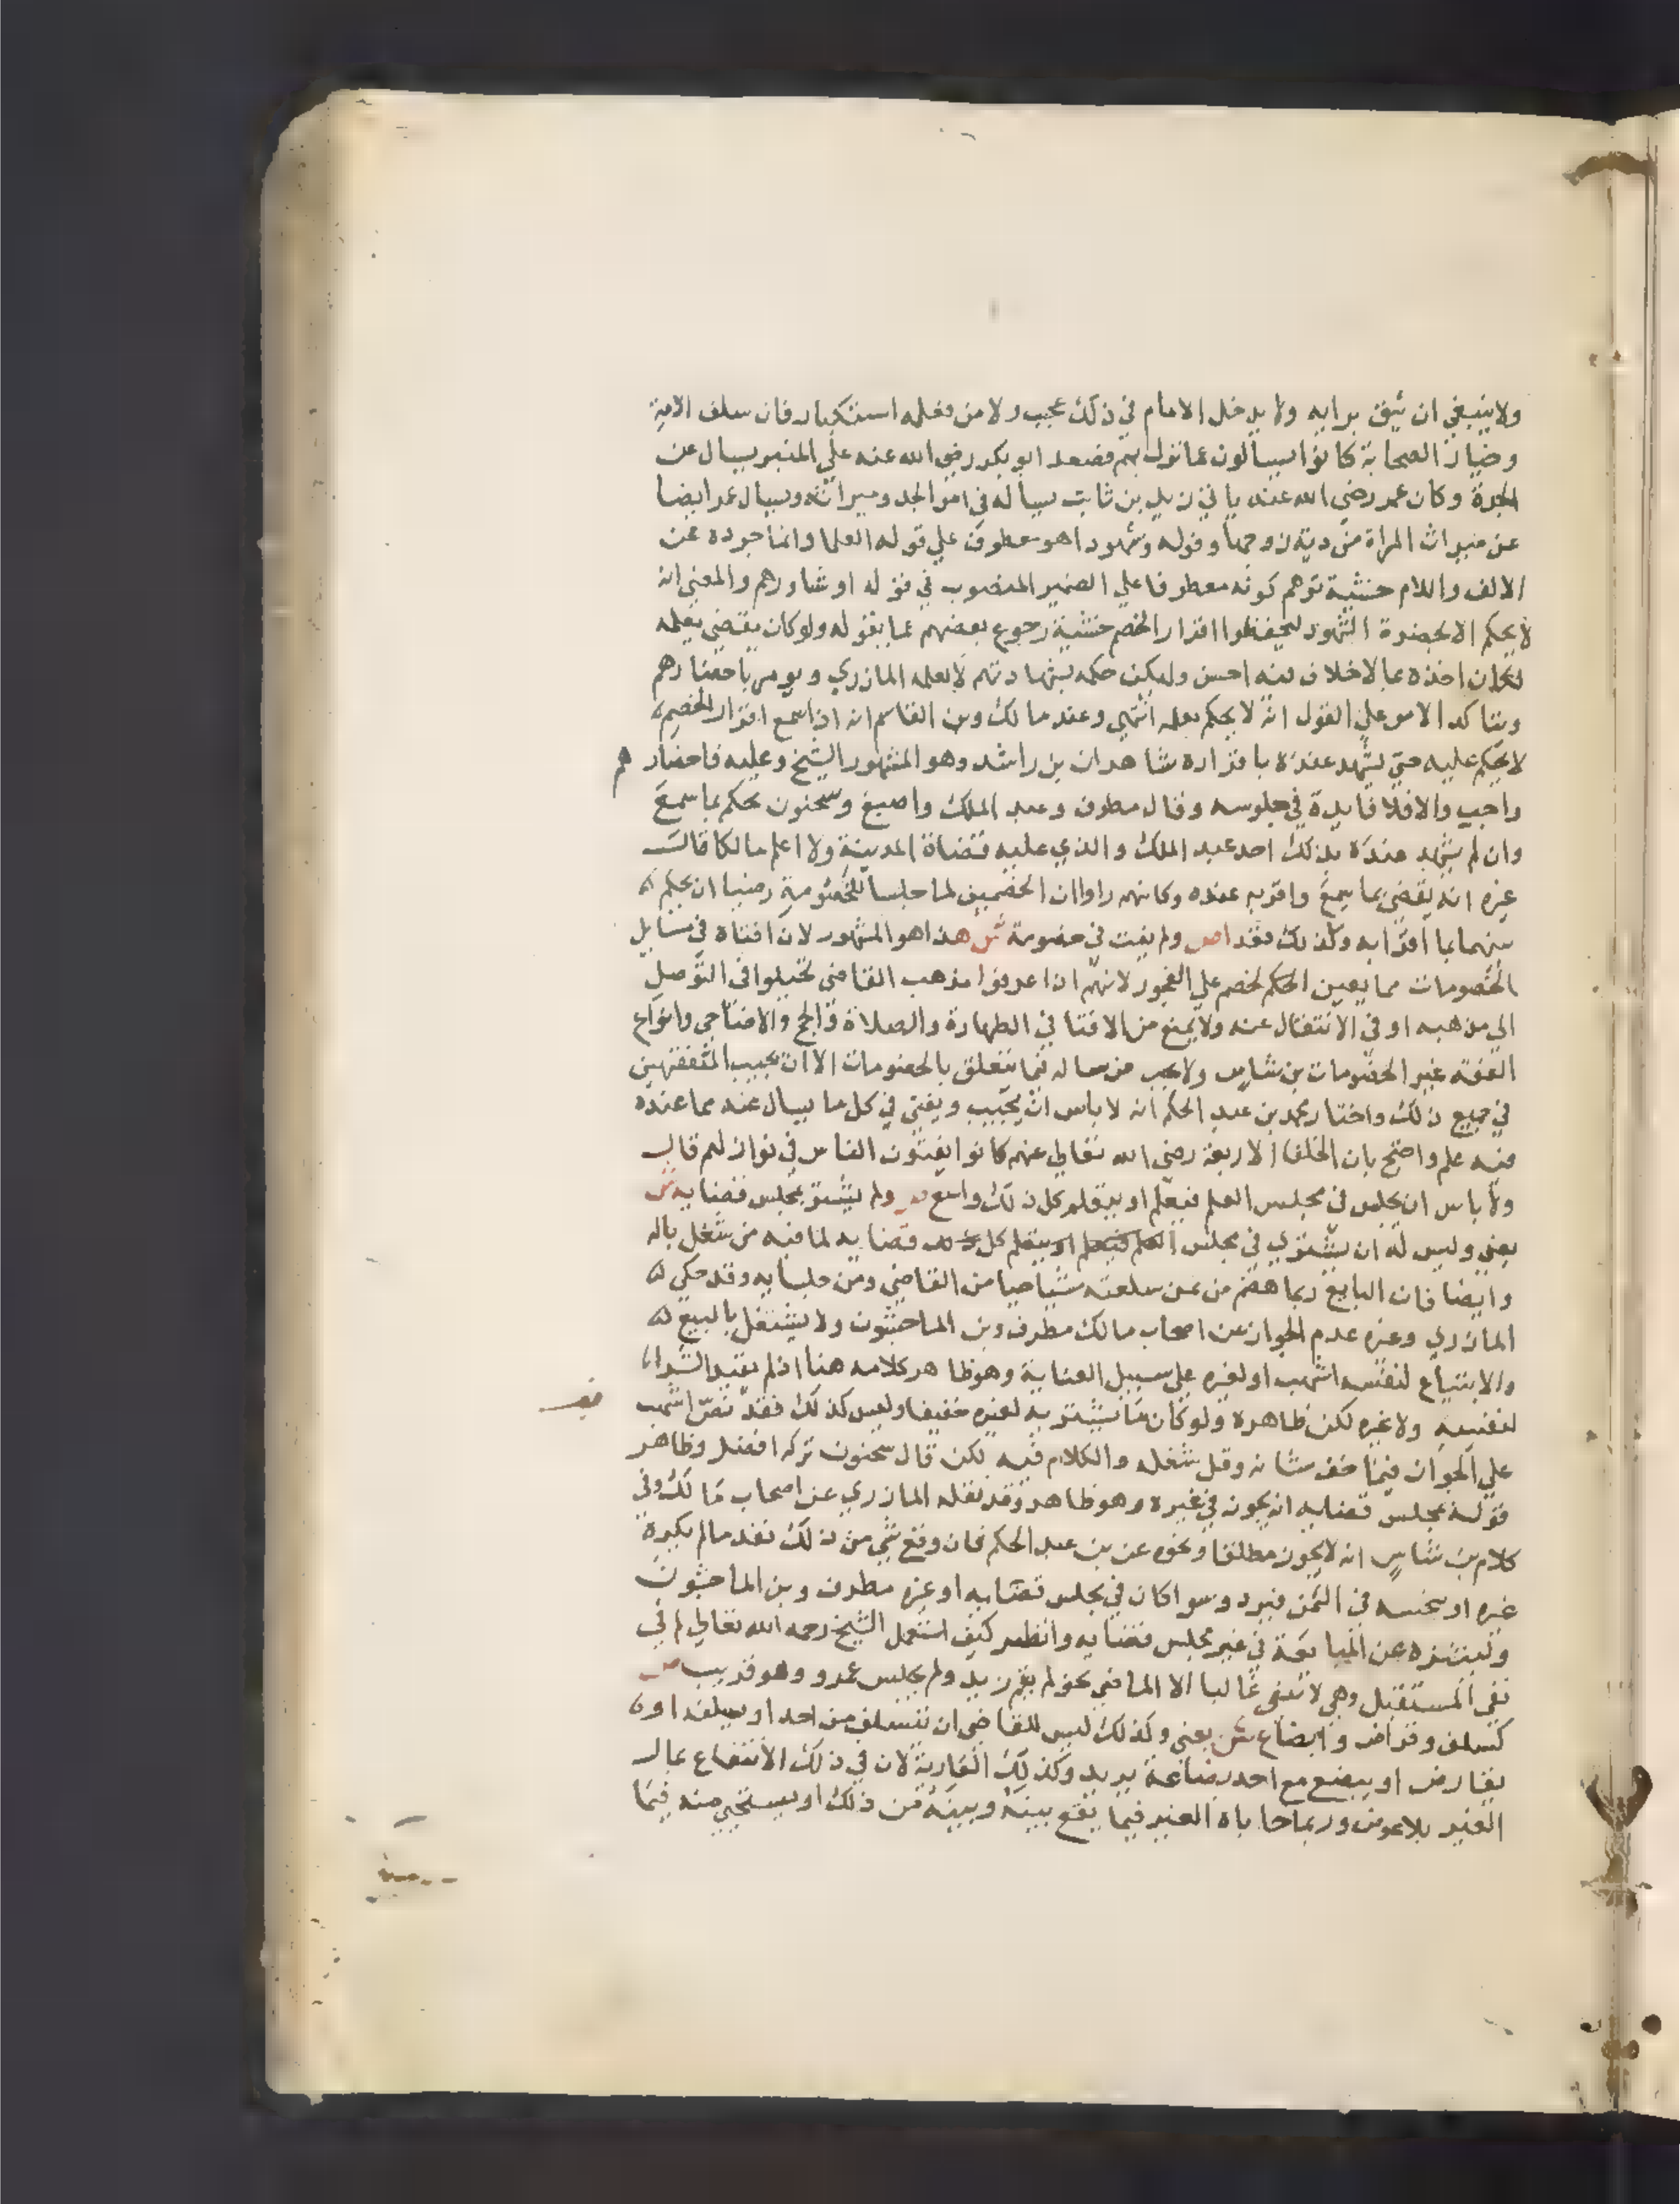 ولا ينبغي ان يثق برايه ولا يدخل الامام في ذلك عيب ولا من فعله استنكار فان سلف الامة
وخيار الصحابة كانوا يسالون عما نزل بهم فصعد ابو بكر رضي الله عنه علي المنبر يسال عن
الجدة وكان عمر رضي الله عنه ياتي زيد بن ثابت يساله في امر الجد وميراثه وسال عمر ايضا
عن ميراث المراة من دية زوجها وقوله وشهودا هو معطوف علي قوله العلما وانما جرده عن
الالف واللام خشية توهم كونه معطوفا علي الضمير المنصوب في قوله او شاورهم والمعني انه
لا يحكم الا بحضرة الشهود ليحفظوا اقرار الخصم خشية رجوع بعضهم عما يقوله ولو كان يقضي بعلمه
لكان اخذه بما لا خلاف فيه احسن وليكن حكمه بشهادتهم لا بعلمه المازري ويومر باحضارهم
ويتاكد الامر علي القول انه لا يحكم بعلمه انتهي وعند مالك وبن القاسم انه اذا سمع اقرار الخصم
لا يحكم عليه حتي يشهد عنده باقراره شاهدان بن راشد وهو المشهور الشيخ وعليه فاحضارهم
واجب والا فلا فايدة في جلوسه وقال مطرف وعبد الملك واصبغ وسحنون يحكم بما سمع
وان لم يشهد عنده بذلك احد عبد الملك والذي عليه قضاة المدينة ولا اعلم مالكا قالت
غيره انه يقضي بما سمع واقر به عنده وكانهم راوا ان الخصمين لما جلسا للخصومة رضيا ان يحكم
بينهما بما اقرا به وكذلك فقد اص ولم يفت في خصومة ش هذا هو المشهور لان افتاه في مسايل
الخصومات مما يعين الحكم لخصم علي الفجور لانهم اذا عرفوا مذهب القاضي تحيلوا في التوصل
الي مذهبه او في الانتقال عنه ولا يمنع من الافتا في الطهارة والصلاة والحج والاضاحي وانواع
الفقه غير الخصومات بن شاس ولا يجب من ساله فيما يتعلق بالخصومات الا ان يجيب المتفقهين
في جميع ذلك واختار محمد بن عبد الحكم انه لا باس ان يجيب ويفتي في كل ما يسال عنه مما عنده
فيه علم واحتج بان الخلفا الاربعة رضي الله تعالي عنهم كانوا يفتون الناس في نوازلهم قال
ولا باس ان يجلس في مجلس العلم فيعلم او يتعلم كل ذلك واسع ص ولم يشتر بمجلس قضايه ش
يعني وليس له ان يشتري في مجلس العلم فيعلم او يتعلم كل ذلك قضايه لما فيه من شغل باله
وايضا فان البايع ربما هضم من ثمن سلعته شيا حيا من القاضي ومن جلسايه وقد حكي
المازري وغيره عدم الجواز عن اصحاب مالك مطرف وبن الماجشون ولا يشتغل بالبيع
والابتياع لنفسه اشهب او لغيره علي سبيل العناية وهو ظاهر كلامه هنا اذ لم يقيد الشراء
لنفسه ولا غيره لكن ظاهره ولو كان ما يشتريه لغيره خفيفا وليس كذلك فقد نص اشهب
علي الجواز فيما خف شانه وقل شغله والكلام فيه لكن قال سحنون تركه افضل وظاهر
قوله بمجلس قضايه انه يجوز في غيره وهو ظاهر وقد نقله المازري عن اصحاب مالك وفي
كلام بن شاس انه لا يجوز مطلقا ونحوه عن بن عبد الحكم فان وقع شي من ذلك نفذ ما لم يكره
غيره او بخسه في الثمن فيرد وسوا كان في مجلس قضايه او غيره مطرف وبن الماجشون
وليتنزه عن المبايعة في غير مجلس قضايه وانظر كيف استعمل الشيخ رحمه الله تعالي لم في
نفي المستقبل وهي لا تنفي غالبا الا الماضي نحو لم يقم زيد ولم يجلس عمرو وهو قريب ص
كسلف وقراض وابضاع ش يعني وكذلك ليس للقاضي ان يتسلف من احد او يسلف او
يقارض او يبضع مع احد بضاعة يريد وكذلك العارية لان في ذلك الانتفاع بمال
الغير بلا عوض وربما حاباه الغير فيما يقع بينه وبينه من ذلك او يستحيي منه فيما